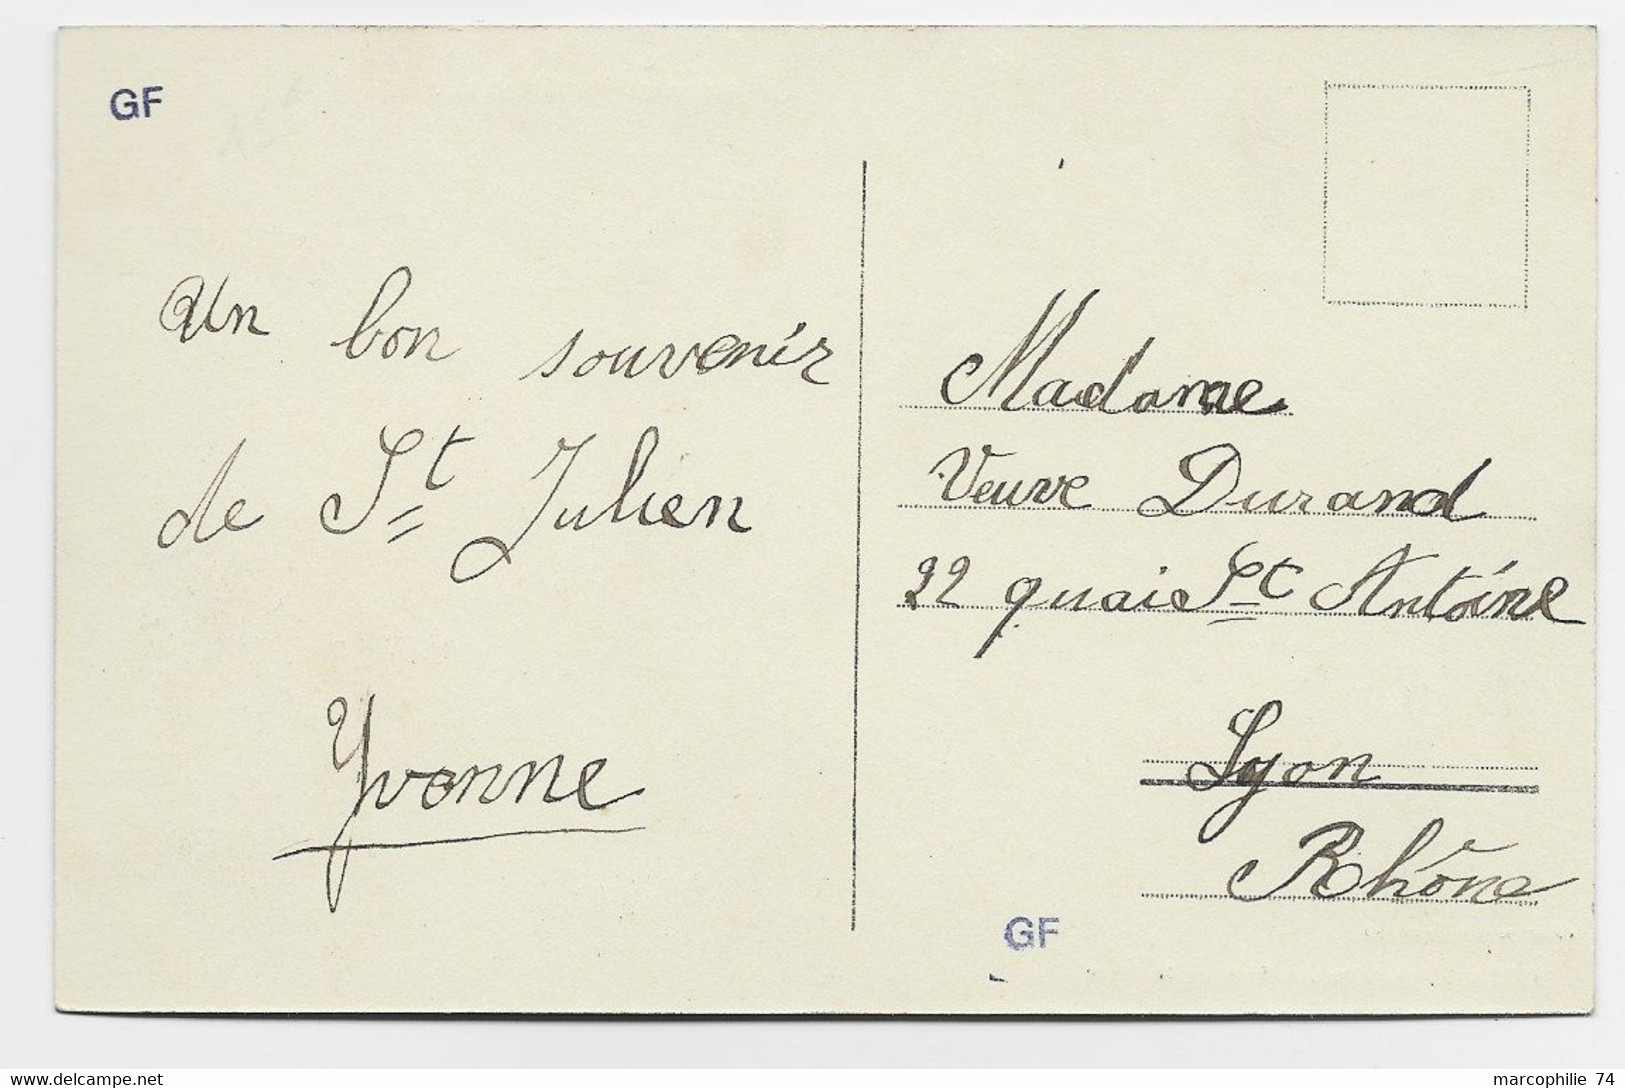 GF
Un bon souvenir
de St Julien
Yvonne
Madame
Veuve Durand
22 quai St Antoine
Lyon
Rhône
GF
marcophilie 74